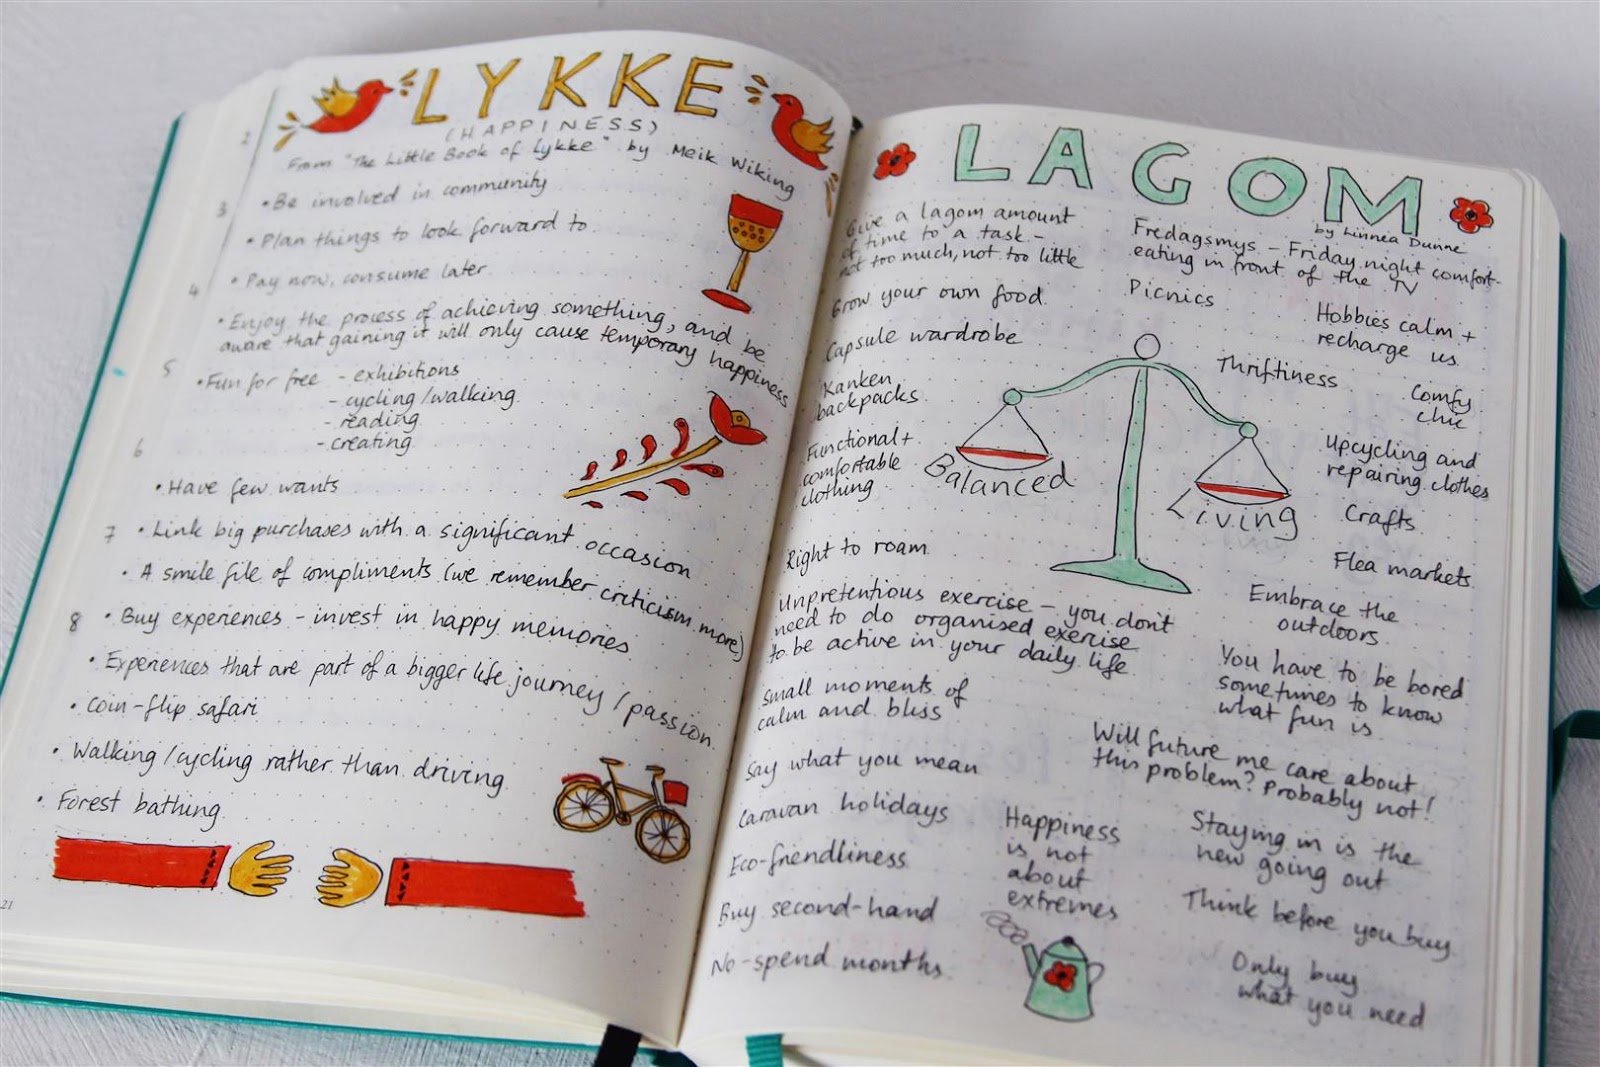 LYKKE
(HAPPINESS)
From "The Little Book of Lykke" by Meik Wiking
• Be involved in community
• Plan things to look forward to
• Pay now, consume later
• Enjoy the process of achieving something, and be
aware that gaining it will only cause temporary happiness
• Fun for free - exhibitions
- cycling/walking
- reading
- creating
• Have few wants
• Link big purchases with a significant occasion
• A smile file of compliments (we remember criticism more)
• Buy experiences - invest in happy memories
• Experiences that are part of a bigger life journey/passion
• Coin-flip safari
• Walking/cycling rather than driving
• Forest bathing
2
3
4
5
6
7
8
21
LAGOM
by Linnea Dunne
Give a lagom amount
of time to a task -
not too much, not too little
Grow your own food
Capsule wardrobe
Kanken
backpacks
Functional +
comfortable
clothing
Right to roam
Unpretentious exercise - you don't
need to do organised exercise
to be active in your daily life
Small moments of
calm and bliss
Say what you mean
Caravan holidays
Eco-friendliness
Buy second-hand
No-spend months
Balanced
Living
Happiness
is not
about
extremes
Fredagsmys - Friday night comfort-
eating in front of the TV
Picnics
Hobbies calm +
recharge us
Thriftiness
Comfy
chic
Upcycling and
repairing clothes
Crafts
Flea markets
Embrace the
outdoors
You have to be bored
sometimes to know
what fun is
Will future me care about
this problem? Probably not!
Staying in is the
new going out
Think before you buy
Only buy
what you need